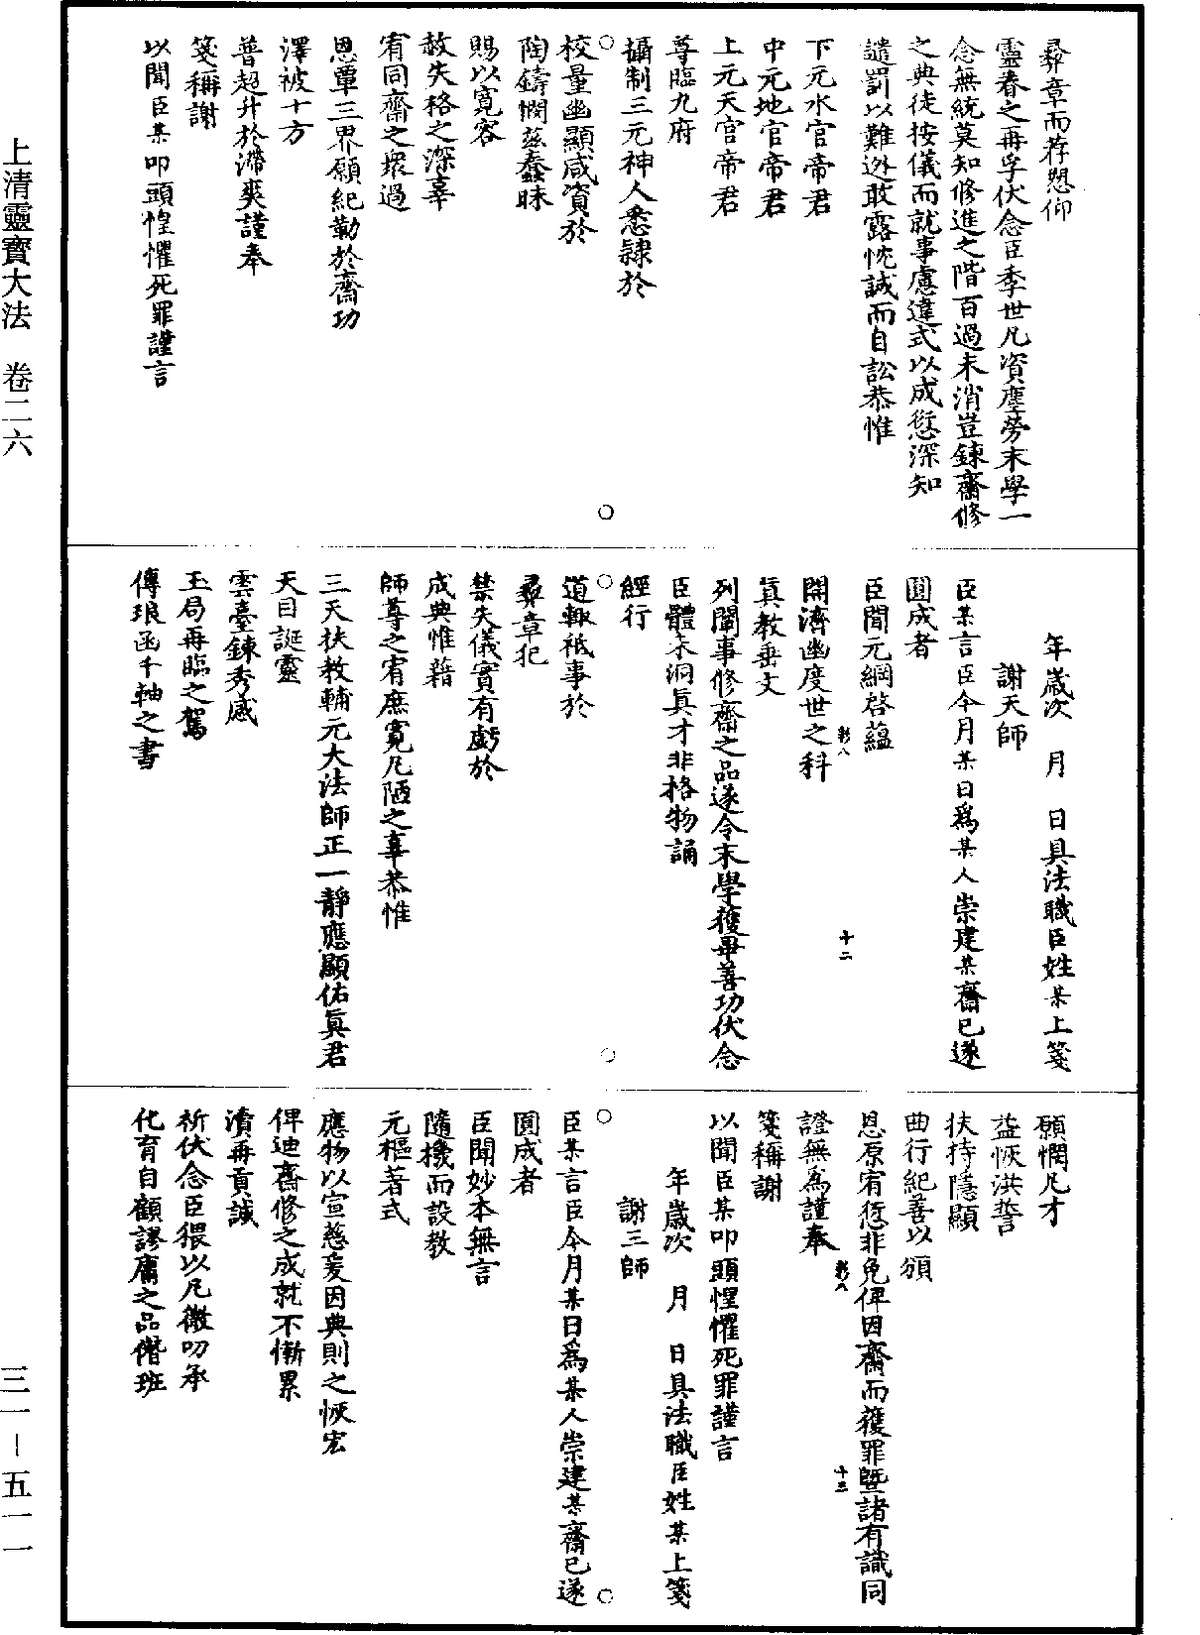 上清靈寶大法　卷二六
三一—五一一
彞章而荐懇仰
靈眷之再孚伏念臣季世凡資塵勞末學一
念無統莫知修進之階百過未消豈鍊齋修
之典徒按儀而就事慮違式以成愆深知
譴罰以難逃敢露忱誠而自訟恭惟
下元水官帝君
中元地官帝君
上元天官帝君
尊臨九府
攝制三元神人悉隸於
校量幽顯咸資於
陶鑄憫茲蠢昧
賜以寬容
赦失格之深辜
宥同齋之眾過
恩覃三界願紀勤於齋功
澤被十方
普超升於滯爽謹奉
箋稱謝
以聞臣某叩頭惶懼死罪謹言
年歲次　月　日具法職臣姓某上箋
謝天師
臣某言臣今月某日爲某人崇建某齋已遂
圓成者
臣聞元綱啓蘊
開濟幽度世之科
眞教垂文
列闡事修齋之品遂令末學獲畢善功伏念
臣體未洞眞才非格物誦
經行
道輒祇事於
彞章犯
禁失儀實有虧於
成典惟藉
師尊之宥庶寬凡陋之辜恭惟
三天扶教輔元大法師正一靜應顯佑眞君
天目誕靈
雲臺鍊秀感
玉局再臨之駕
傳琅函千軸之書
願憫凡才
益恢洪誓
扶持隱顯
曲行紀善以頒
恩原宥愆非免俾因齋而獲罪曁諸有識同
證無爲謹奉
箋稱謝
以聞臣某叩頭惶懼死罪謹言
年歲次　月　日具法職臣姓某上箋
謝三師
臣某言臣今月某日爲某人崇建某齋已遂
圓成者
臣聞妙本無言
隨機而設教
元樞著式
應物以宣慈爰因典則之恢宏
俾迪齋修之成就不慚累
瀆再貢誠
祈伏念臣猥以凡微叨承
化育自顧謬庸之品僭班